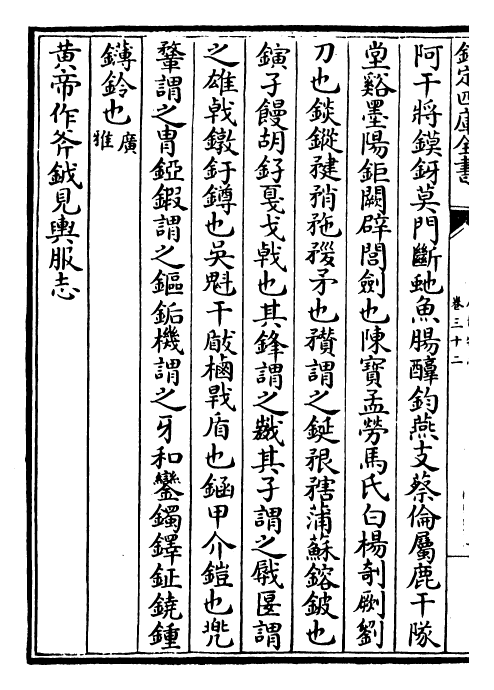 欽定四庫全書
卷三十二
阿干將鏌釾莫門斷虵魚腸醇鈞燕支蔡倫屬鹿干隊
堂谿墨陽鉅闕辟閭劍也陳寶孟勞馬氏白楊剞劂劉
刀也錟鏦𥎊矟𥍢𥎆矛也穳謂之鋋𥍁𥎆蒲蘇鎔鈹也
鏔子饅胡釨戛戈戟也其鋒謂之𢧵其子謂之戺匽謂
之雄戟鐓釪鐏也吳魁干瞂樐戰盾也錏甲介鎧也兠
鞪謂之冑錏鍜謂之鏂銗機謂之牙和鑾鐲鐸鉦鐃鍾
鏄鈴也廣雅
黄帝作斧鉞見輿服志